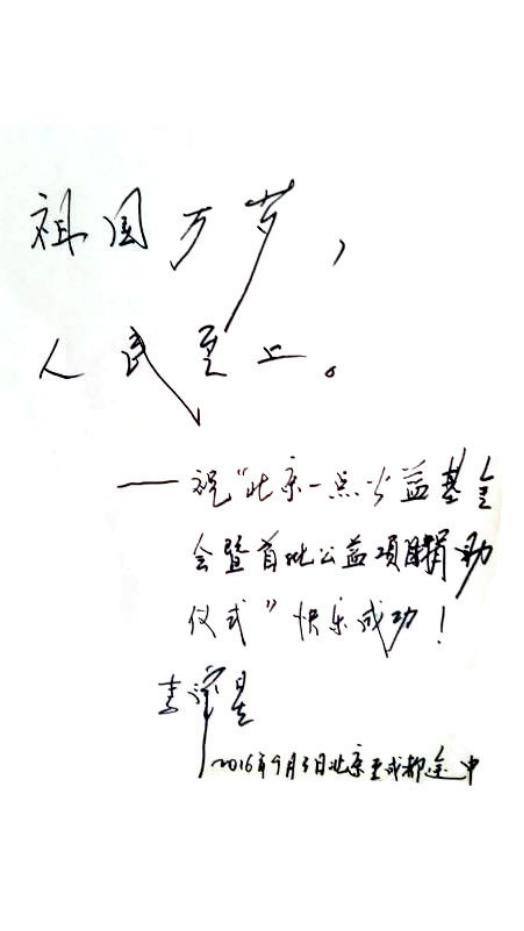 祖国万岁，
人民至上。
——祝“北京一点公益基金
会暨首批公益项目捐助
仪式”快乐成功！
李肇星
2016年9月3日北京至成都途中